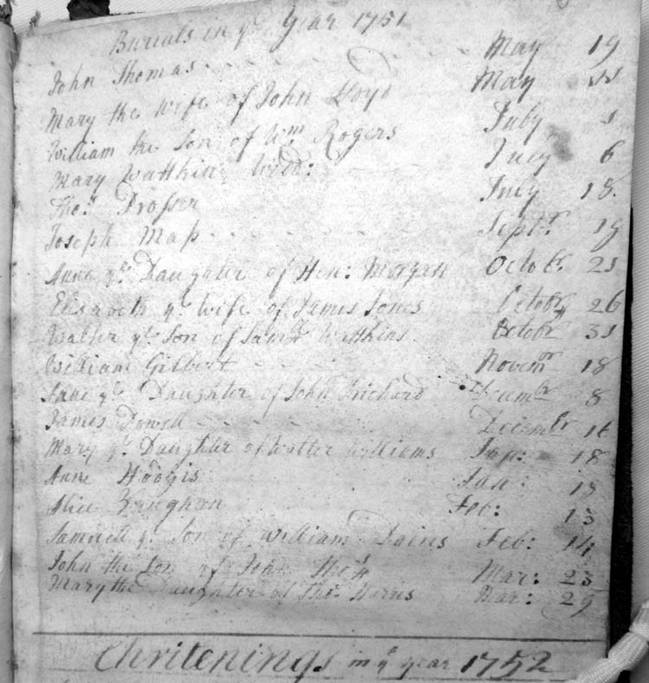 Burials in yᵉ Year 1751
John Thomas May 19
Mary the wife of John Lloyd May
William the Son of Wm Rogers July
Mary Watthins Widd: July 6
Tho.s Prosser July 18.
Joseph Map Septr 19
Anne ye Daughter of Hen: Morgan Octobr
Elisabeth ye wife of James Jones Octobr 26
Walter ye Son of Watthins Octobr 31
William Gilbert Novemr 18
Jane ye Daughter of John Prichard Decembr 8
James Powell Decembr 16
Mary ye Daughter of Walter Williams Jan: 18
Anne Hodgis Jan: 19
Alice Vaughan Feb: 13
Samuell ye Son of William Feb: 14
John the Son of John Mar: 23
Mary the Daughter of Tho.s Harris Mar: 29
Chritenings in ye year 1752